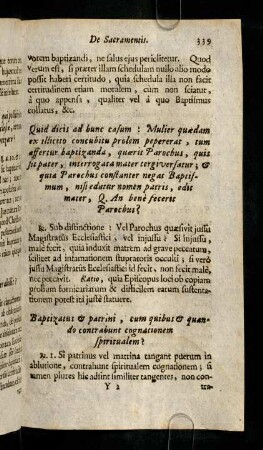 De Sacramentis. 339
vorem baptizandi, ne salus ejus periclitetur. Quod
verum est, si præter illam schedulam nullo alio modo
possit haberi certitudo, quia schedula illa non facit
certitudinem etiam moralem, cum non sciatur,
à quo appensa, qualiter vel à quo Baptismus
collatus, &c.
Quid dicis ad hunc casum: Mulier quædam
ex illicito concubitu prolem pepererat, cum
affertur baptizanda, quærit Parochus, quis
sit pater, interrogata mater tergiversatur; &
quia Parochus constanter negat Baptis-
mum, nisi edatur nomen patris, edit
mater, Q. An benè fecerit
Parochus?
R. Sub distinctione: Vel Parochus quæsivit jussu
Magistratûs Ecclesiastici, vel injussu? Si injussu
malè fecit, quia induxit matrem ad grave peccatum,
scilicet ad infamationem stupratoris occulti; si verò
jussu Magistratûs Ecclesiastici id fecit, non fecit malè,
nec peccavit. Ratio, quia Episcopus loci ob copiam
prolium fornicariarum & difficilem earum susten-
tationem potest ità justè statuere.
Baptizatus & patrini, cum quibus & quan-
do contrahunt cognationem
spiritualem?
R. 1. Si patrinus vel matrina tangant puerum in
ablutione, contrahunt spiritualem cognationem; si
autem plures hic adsint similiter tangentes, non con-
Y 2 tra-